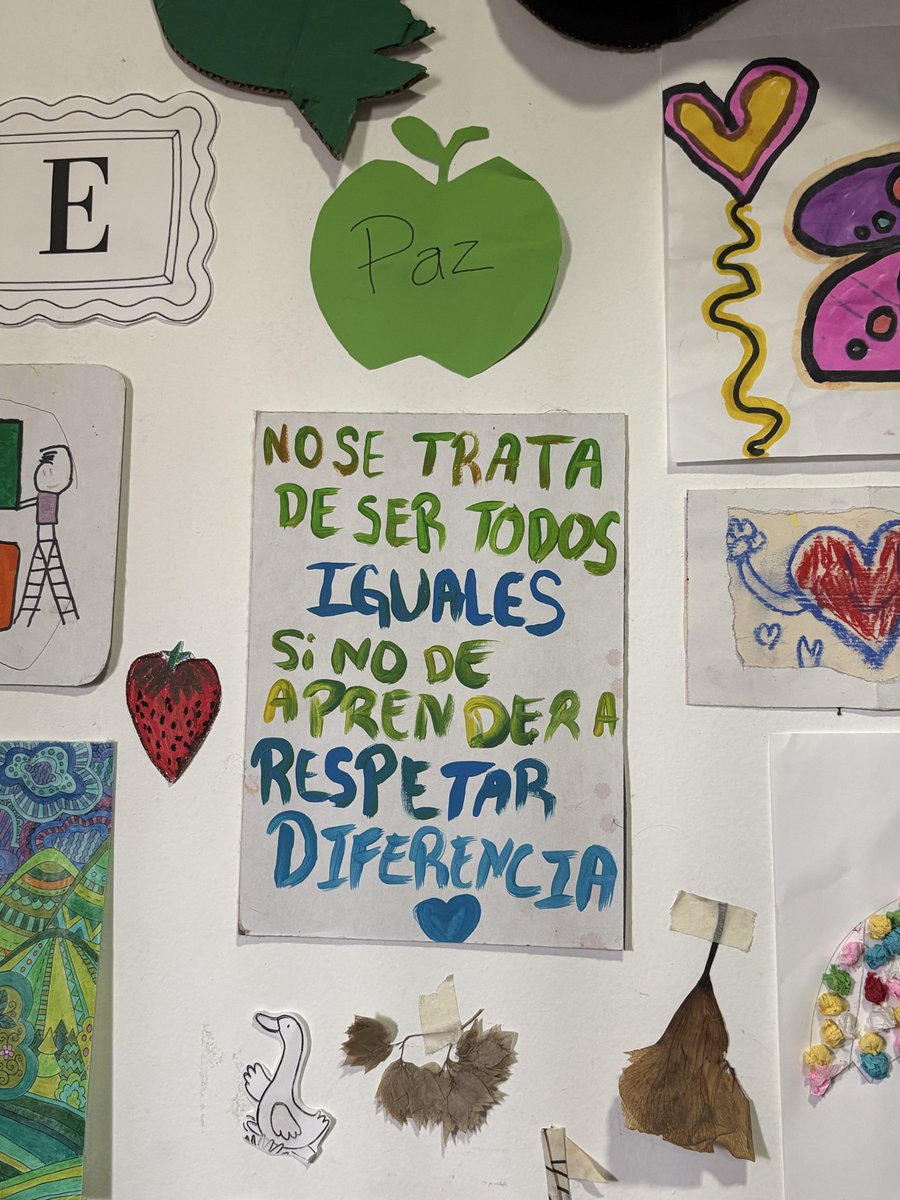 E
Paz
NO SE TRATA
DE SER TODOS
IGUALES
Si NO DE
APRENDER A
RESPETAR
DIFERENCIA